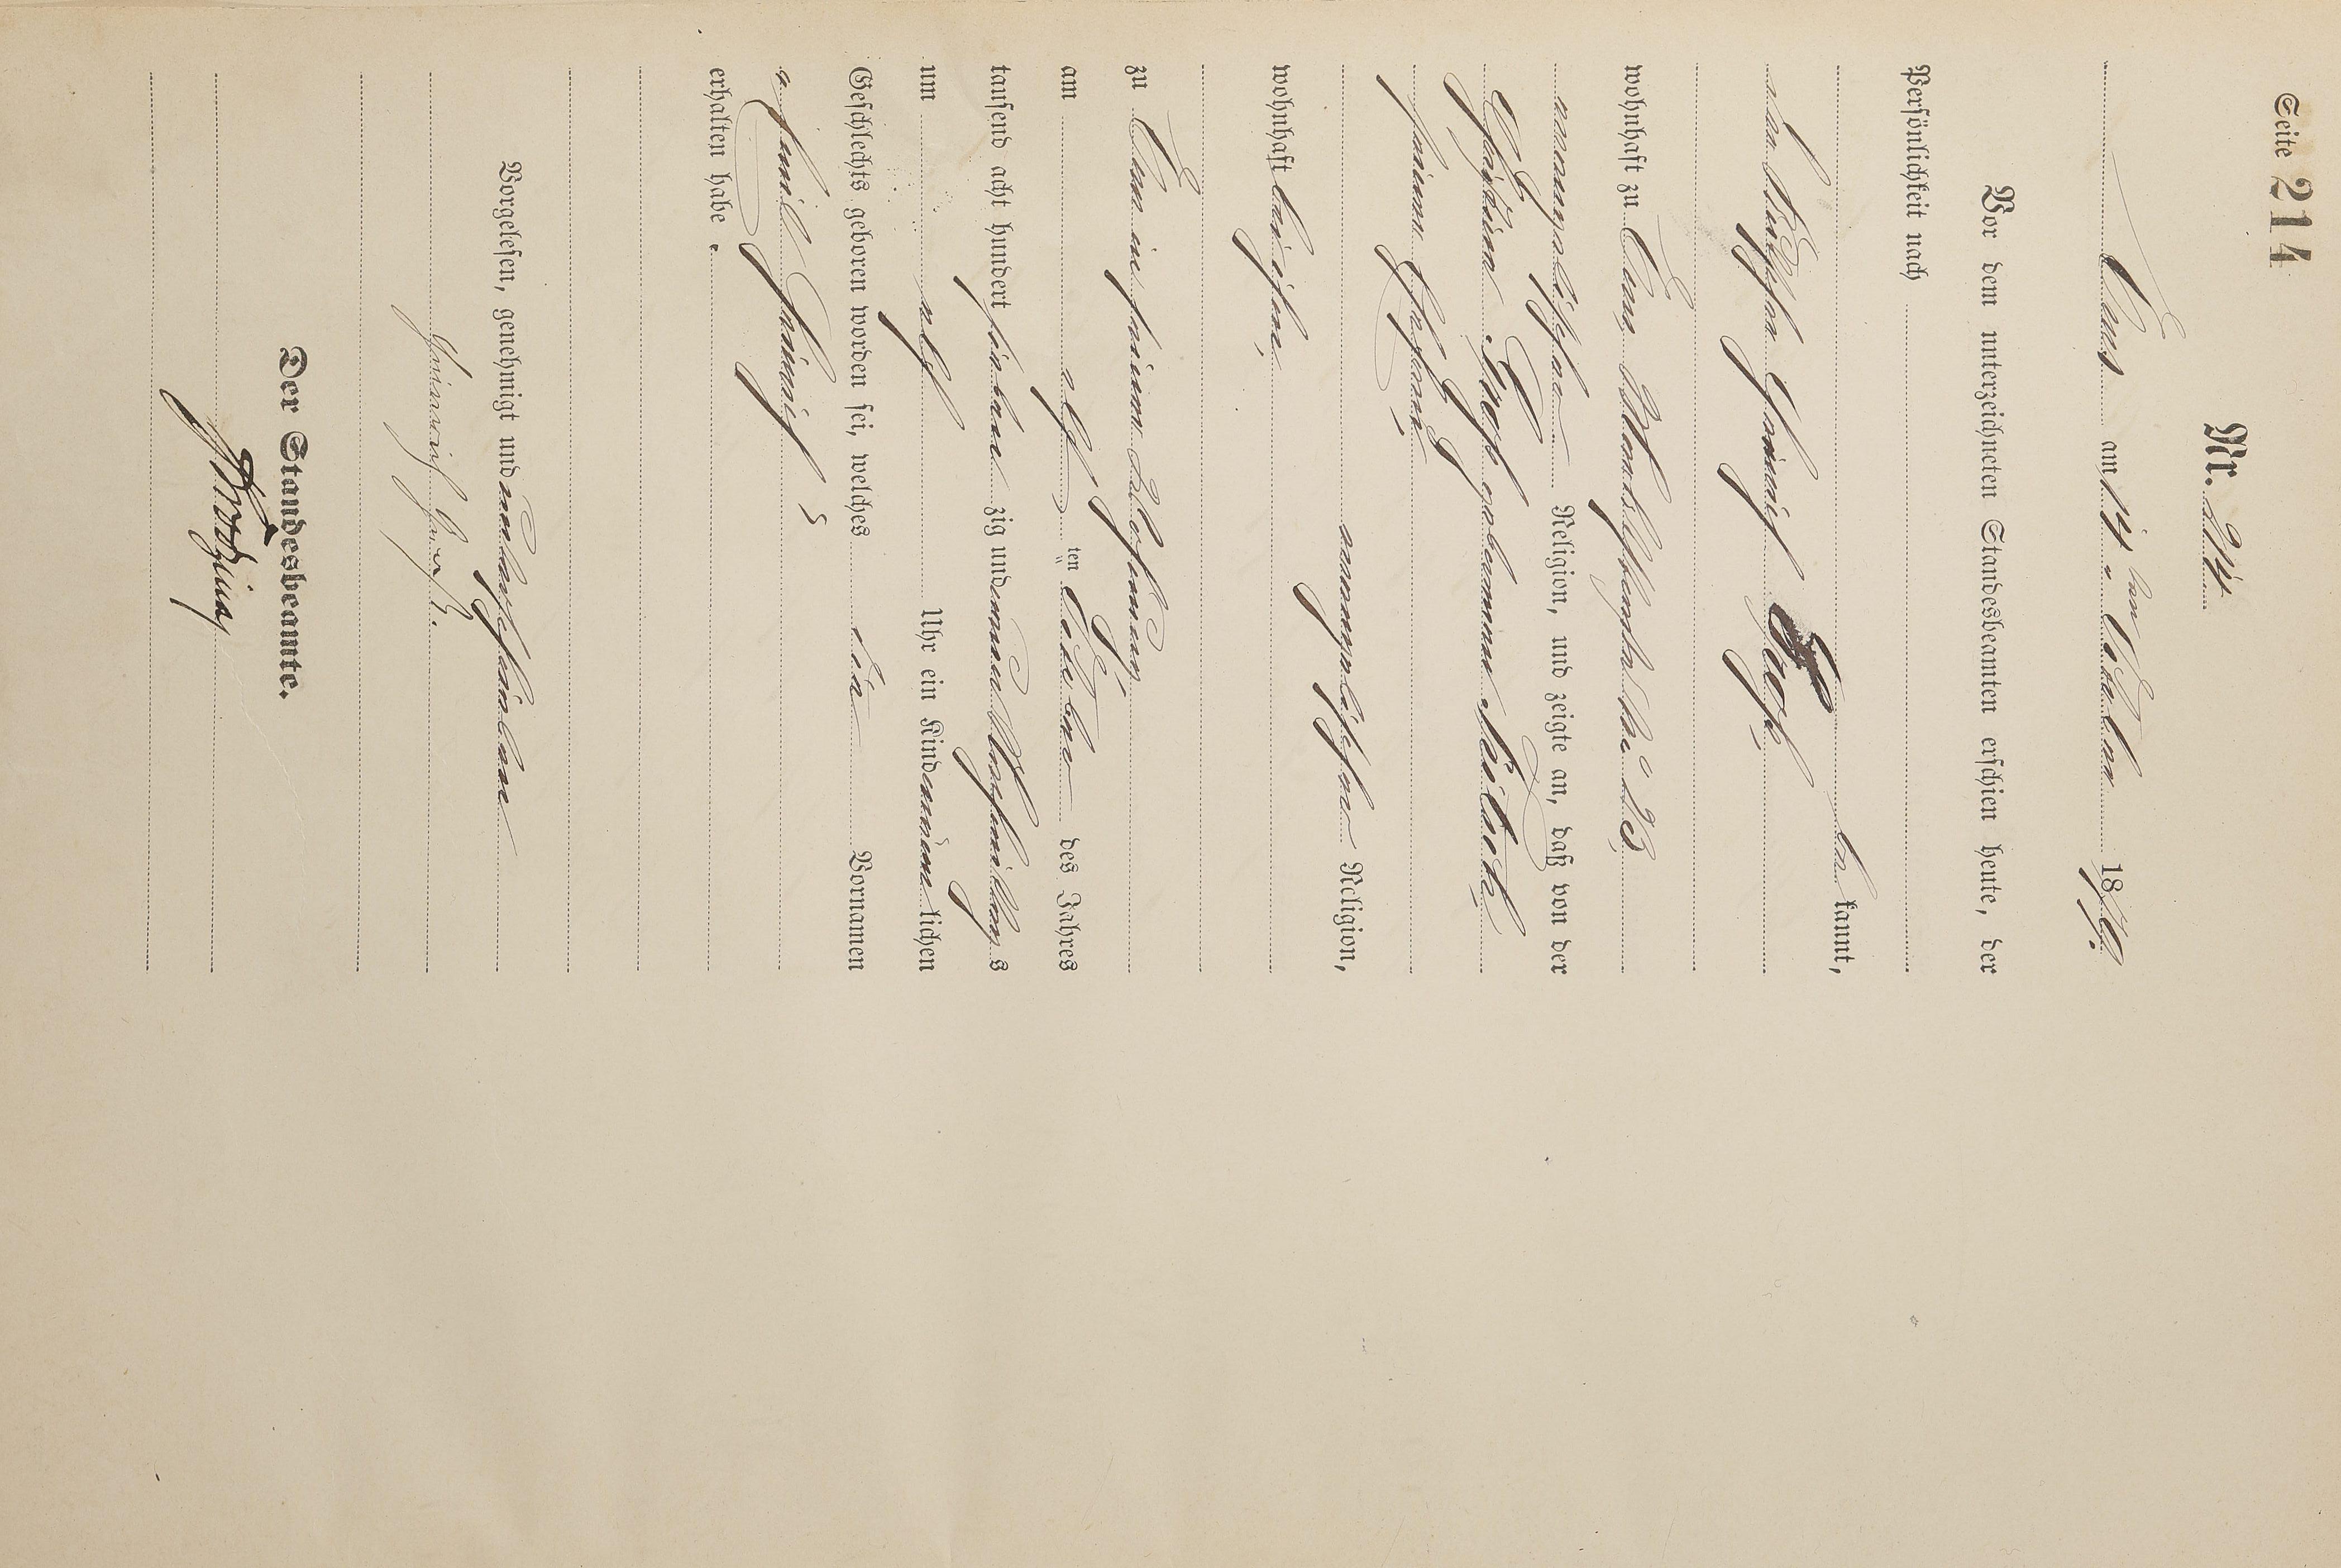 Seite 214
Nr. 214.
Ems am 14. ten October 1879.
Vor dem unterzeichneten Standesbeamten erschien heute, der
Persönlichkeit nach
be kannt,
der Heinrich
wohnhaft zu Ems, bei 23,
evangelischer Religion, und zeigte an, daß von der
geborenen
seiner Ehefrau,
evangelischer Religion,
wohnhaft bei ihm,
zu Ems in seiner Wohnung,
am elf ten October des Jahres
tausend acht hundert sieben zig und neun Vormittag s
um elf Uhr ein Kind männ lichen
Geschlechts geboren worden sei, welches die Vornamen
Emil Heinrich
erhalten habe.
Vorgelesen, genehmigt und unterschrieben
Heinrich
Der Standesbeamte.